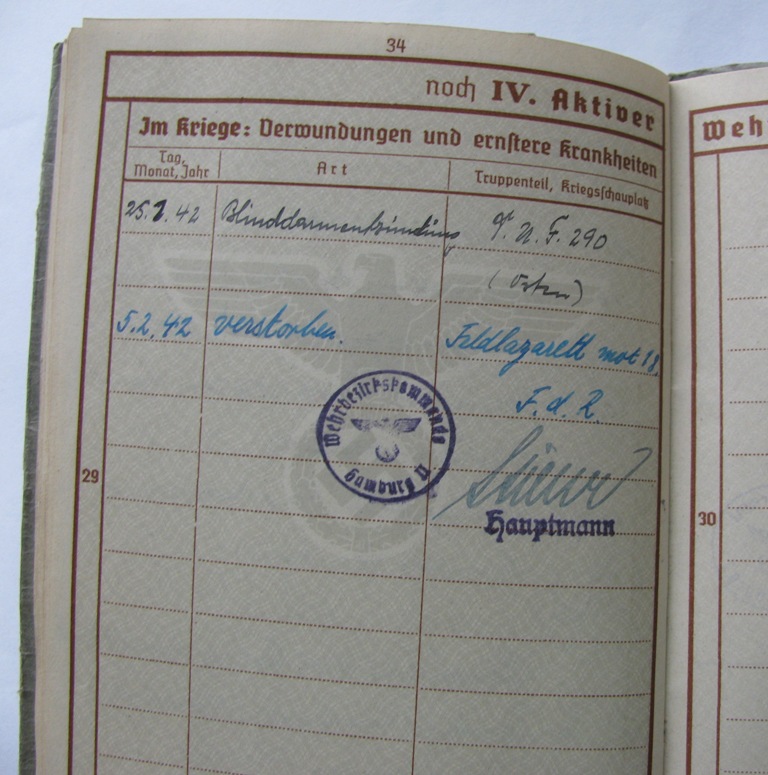 34
noch IV. Aktiver
Im Kriege: Verwundungen und ernstere Krankheiten
Tag, Monat, Jahr
Art
Truppenteil, Kriegsschauplatz
25.1.42 Blinddarmentzündung 290
(Osten)
5.2.42 verstorben. Feldlazarett mot 18.
F. d. R.
Wehrbezirkskommando Hamburg II
Hauptmann
29
Weh
30